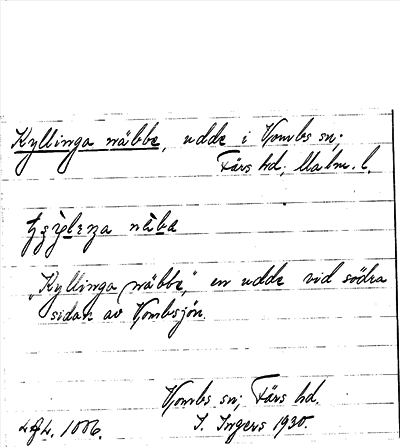 Kyllinga näbbe, udde i Vombs sn;
Färs hd; Malm. l.
näba
"Kyllinga näbbe", en udde vid södra
sidan av Vombsjön.
Vombs sn; Färs hd.
I. Ingers 1930.
1006.